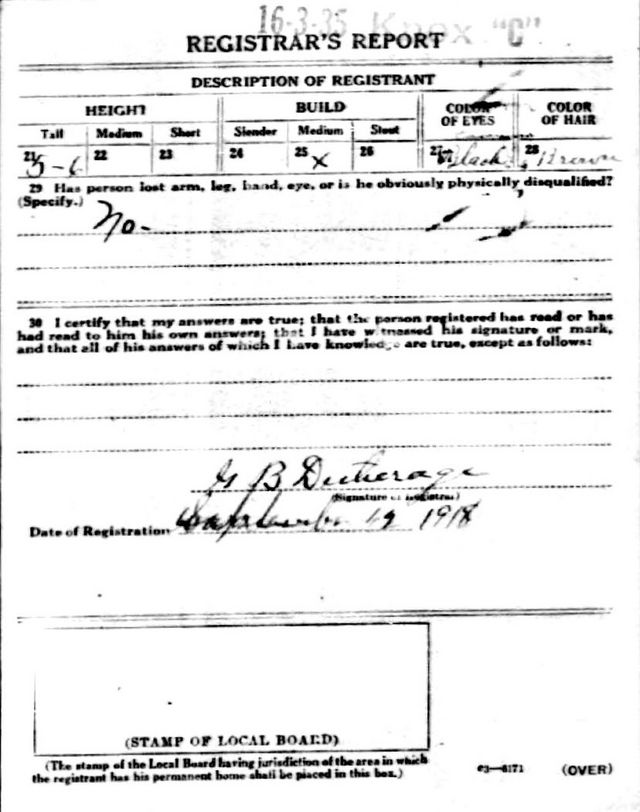 16-3-35 Knox "C"
REGISTRAR'S REPORT
DESCRIPTION OF REGISTRANT
HEIGHT BUILD COLOR OF EYES COLOR OF HAIR
Tall Medium Short Slender Medium Stout
21 5-6 22 23 24 25 x 26 27 Black 28 Brown
29 Has person lost arm, leg, hand, eye, or is he obviously physically disqualified?
(Specify.)
No-
30 I certify that my answers are true; that the person registered has read or has
had read to him his own answers; that I have witnessed his signature or mark,
and that all of his answers of which I have knowledge are true, except as follows:
G B Dutherage
(Signature of Registrar)
Date of Registration September 12 1918
(STAMP OF LOCAL BOARD)
(The stamp of the Local Board having jurisdiction of the area in which
the registrant has his permanent home shall be placed in this box.)
03—6171 (OVER)